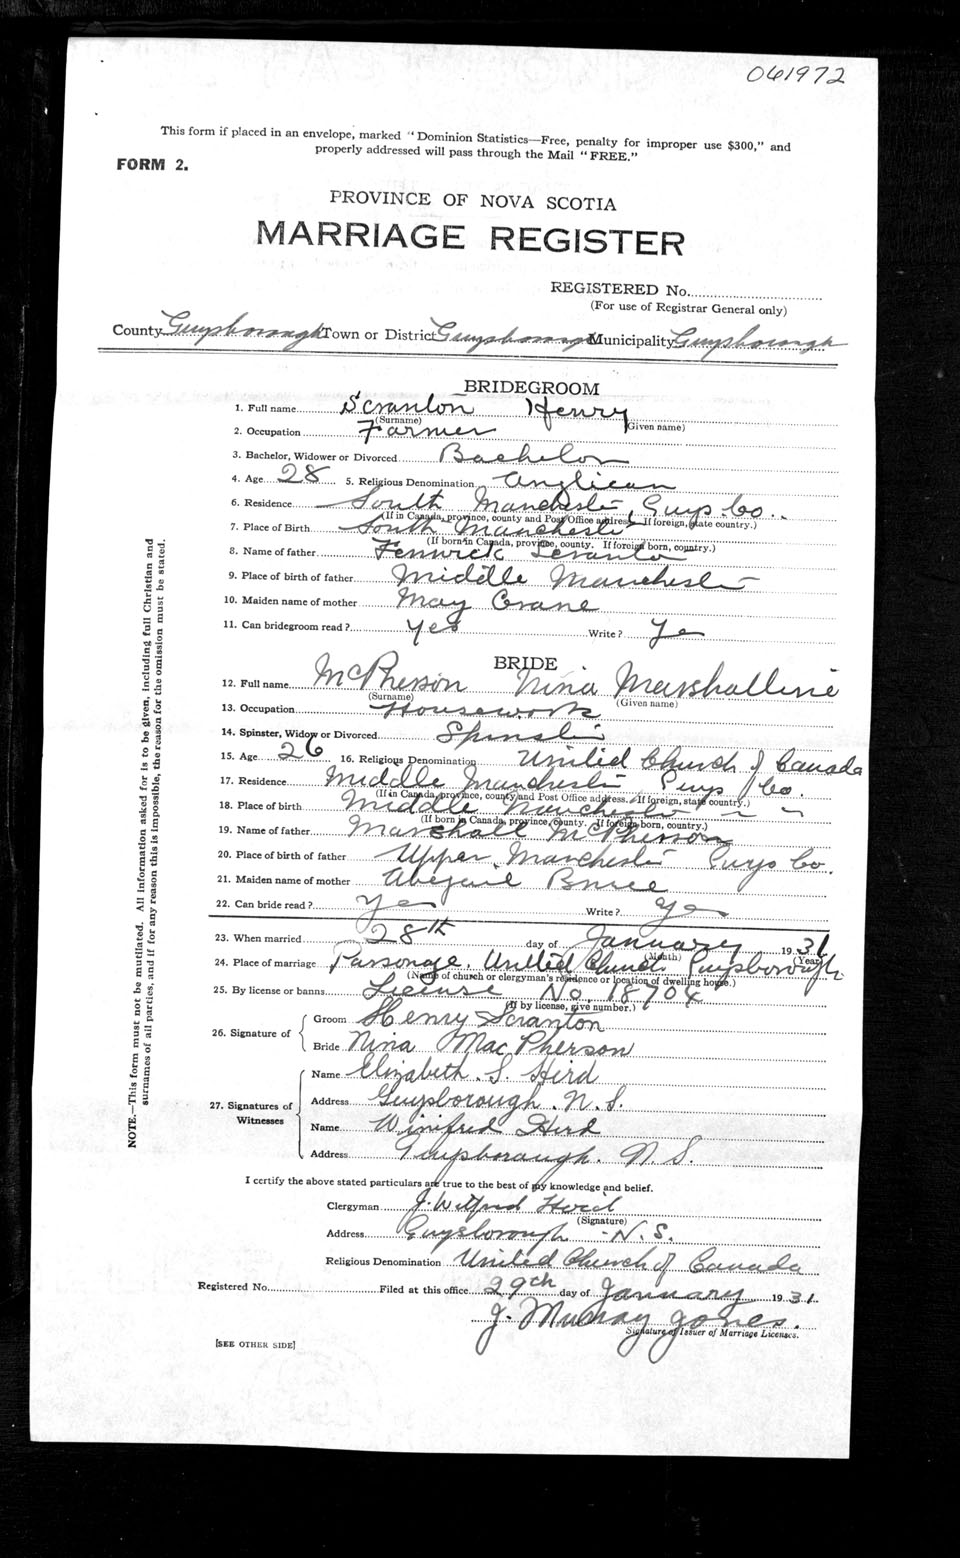 061972
This form if placed in an envelope, marked "Dominion Statistics—Free, penalty for improper use $300," and
properly addressed will pass through the Mail "FREE."
FORM 2.
PROVINCE OF NOVA SCOTIA
MARRIAGE REGISTER
REGISTERED No.
(For use of Registrar General only)
County Guysborough Town or District Guysborough Municipality Guysborough
BRIDEGROOM
1. Full name Scranton Henry
(Surname) (Given name)
2. Occupation Farmer
3. Bachelor, Widower or Divorced Bachelor
4. Age 28 5. Religious Denomination Anglican
6. Residence South Manchester, Guys. Co.
(If in Canada, province, county and Post Office address. If foreign, state country.)
7. Place of Birth South Manchester
(If born in Canada, province, county. If foreign born, country.)
8. Name of father Fenwick Scranton
9. Place of birth of father Middle Manchester
10. Maiden name of mother May Crane
11. Can bridegroom read? Yes Write? Ye
BRIDE
12. Full name McPherson Nina Marshalline
(Surname) (Given name)
13. Occupation Housework
14. Spinster, Widow or Divorced Spinster
15. Age 26 16. Religious Denomination United Church of Canada
17. Residence Middle Manchester Guys Co.
(If in Canada, province, county and Post Office address. If foreign, state country.)
18. Place of birth Middle Manchester " "
(If born in Canada, province, county. If foreign born, country.)
19. Name of father Marshall McPherson
20. Place of birth of father Upper Manchester Guys Co.
21. Maiden name of mother Abegail Bruce
22. Can bride read? Yes Write? Yes
23. When married 28th day of January 1931
(Month) (Year)
24. Place of marriage Parsonage. United Church Guysborough
(Name of church or clergyman's residence or location of dwelling house.)
25. By license or banns License No. 18704
(If by license, give number.)
26. Signature of Groom Henry Scranton
Bride Nina MacPherson
27. Signatures of Witnesses Name Elizabeth. S. Herd
Address Guysborough. N. S.
Name Winifred Herd
Address Guysborough. N. S.
I certify the above stated particulars are true to the best of my knowledge and belief.
Clergyman J. Wilfred Herd
(Signature)
Address Guysborough - N. S.
Religious Denomination United Church of Canada
Registered No. Filed at this office 29th day of January 1931.
J. Murray Jones.
Signature of Issuer of Marriage Licenses.
[SEE OTHER SIDE]
NOTE.—This form must not be mutilated. All information asked for is to be given, including full Christian and
surnames of all parties, and if for any reason this is impossible, the reason for the omission must be stated.